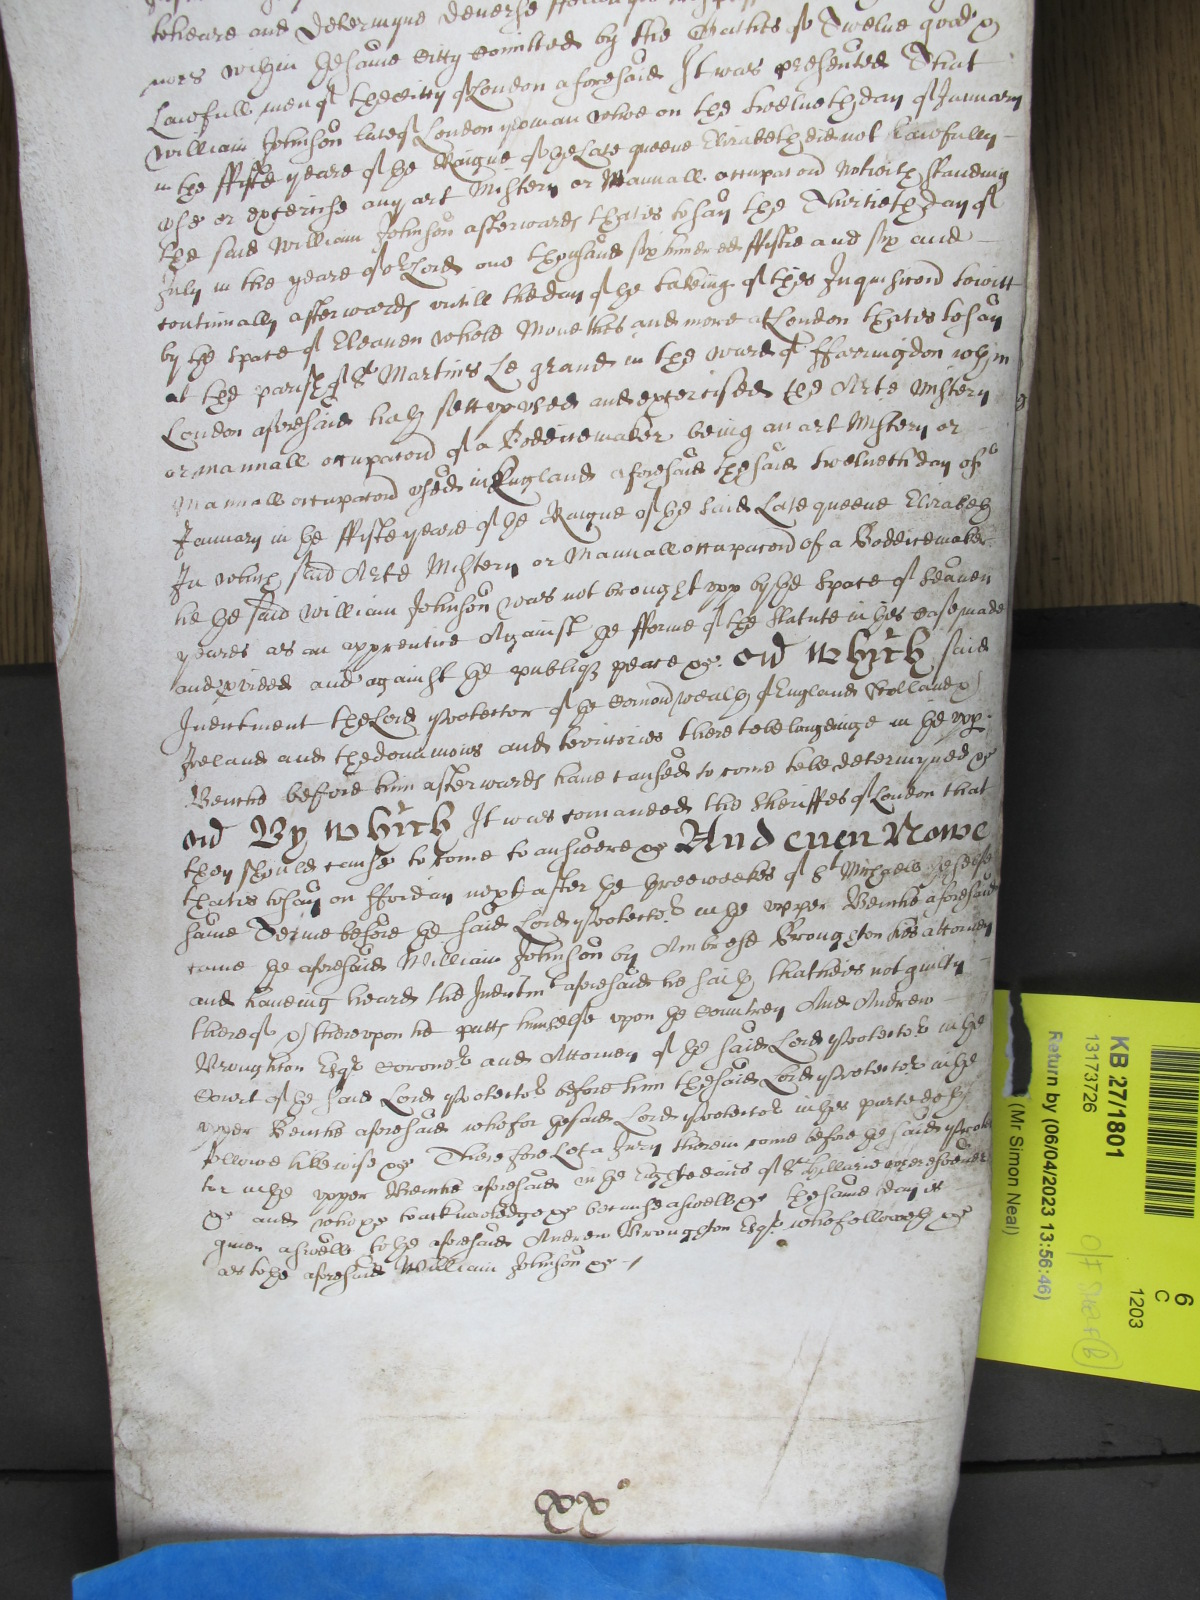 to heare and determyne diverse ffellonies
nors within the same Citty comitted by the Oathes of Twelve good &
Lawfull men of the Citty of London aforesaid It was presented That
William Johnson late of London yeoman whoe on the twelveth day of January
in the ffifth yeare of the Raigne of the late queene Elizabeth did not lawfully
use or exercise any art Mistery or Manuall occupacon Notwithstanding
the said William Johnson afterwards that is to say the Thirtieth day of
July in the yeare of or Lord one thousand six hundred ffiftie and six and
continually afterwards untill the day of the takeing of this Inquisicon to witt
by the space of Eleaven whole Monethes and more at London that is to say
at the parish of St Martins Le grand in the ward of ffarringdon wthin
London aforesaid hath sett up used and exercised the Arte Mistery
or manuall occupacon of a Boddicemaker being an art Mistery or
Manuall occupacon used in England aforesaid the said twelveth day of
January in the ffifte yeare of the Raigne of the said Late queene Elizabeth
In which said Arte Mistery or Manuall occupacon of a Boddicemaker
he the said William Johnson was not brought upp by the space of Seaven
yeares as an apprentice Against the fforme of the Statute in this case made
and pvided and against the publique peace &c. And Which said
Indictment the Lord Protector of the Comonwealth of England Scotland &
Ireland and the dominions and territories thereto belongeinge in the upp
Benche before him afterwards have caused to come to be determyned &c
And By which It was comanded the Sheriffes of London that
they should cause to come to answere &c And even Nowe
that is to say on ffriday next after the three weekes of St Michaell the selfe
same Terme before the said Lord Protector in the upper Benche aforesaid
came the aforesaid William Johnson by Ambrose Broughton his attorney
and haveing heard the Indictmt aforesaid he saith that he is not guilty
thereof & thereupon he putts himselfe upon the Countrey And Andrew
Broughton Esqr Coroner and Attorney of the said Lord Protector in the
Court of the said Lord Protector before him the said Lord Protector in the
upper Benche aforesaid who for the said Lord Protector in this parte doth
ffollowe likewise &c Therefore Let a Jury therein come before the said Protec
tor in the upper Benche aforesaid in the Eight daies of St Hillarie wheresoever
&c and who &c to acknowledge &c because aswell &c the same day is
given aswell to the aforesaid Andrew Broughton Esqr who followeth &c
as to the aforesaid William Johnson &c
xxo
KB 27/1801
13173726
Return by (06/04/2023 13:56:46)
(Mr Simon Neal)
6
C
1203